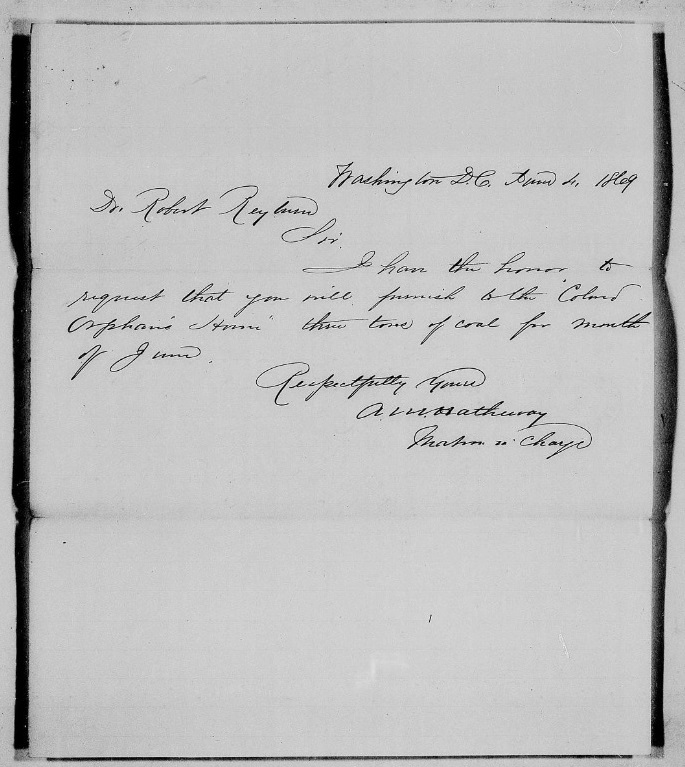 Washington D.C. June 4, 1869
Dr. Robert Reyburn
Sir.
I have the honor to
request that you will furnish to the Colored
Orphan's Home three tons of coal for month
of June.
Respectfully Yours
A. M. Hatheway
Matron in Charge